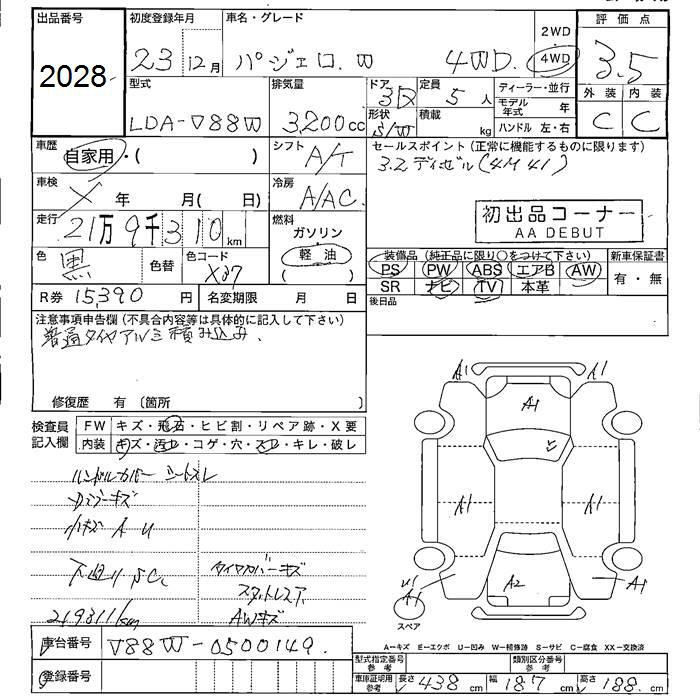 出品番号 初度登録年月 車名・グレード 2WD 評価点
2028 23 12月 パジェロ.W 4WD. 4WD 3.5
型式 排気量 ドア 3 定員 5人 ディーラー・並行 外装 内装
LDA-V88W 3,200cc 形状 S/W 積載 kg モデル年式 年 C C
ハンドル 左・右
車歴 自家用・( ) シフト A/T セールスポイント (正常に機能するものに限ります)
3.2ディーゼル(4M41)
車検 X 年 月( 日) 冷房 A/AC
初出品コーナー
AA DEBUT
走行 21万9千310km 燃料 ガソリン
軽油
( )
色 黒 色替 色コード X37
装備品 (純正品に限り○をつけて下さい) 新車保証書
PS PW ABS エアB AW 有・無
SR ナビ TV 本革
R券 15,390円 名変期限 月 日 後日品
注意事項申告欄 (不具合内容等は具体的に記入して下さい)
普通タイヤアルミ積み込み.
修復歴 有 (箇所 )
検査員記入欄 FW キズ・飛石・ヒビ割・リペア跡・X要
内装 キズ・汚レ・コゲ・穴・スレ・キレ・破レ
ハンドルカバー シートスレ
小キズ A U
下廻りSC
タイヤカバーキズ
スタットレスタ
219311km AWキズ
A1 A1
A1
A1 A1
A2
A1 A1
スペア
A-キズ E-エクボ U-凹み W-補修跡 S-サビ C-腐食 XX-交換済
車台番号 V88W-0500149.
登録番号
型式指定番号 参考 類別区分番号 参考
車庫証明用 参考 長さ 438cm 幅 187cm 高さ 188cm